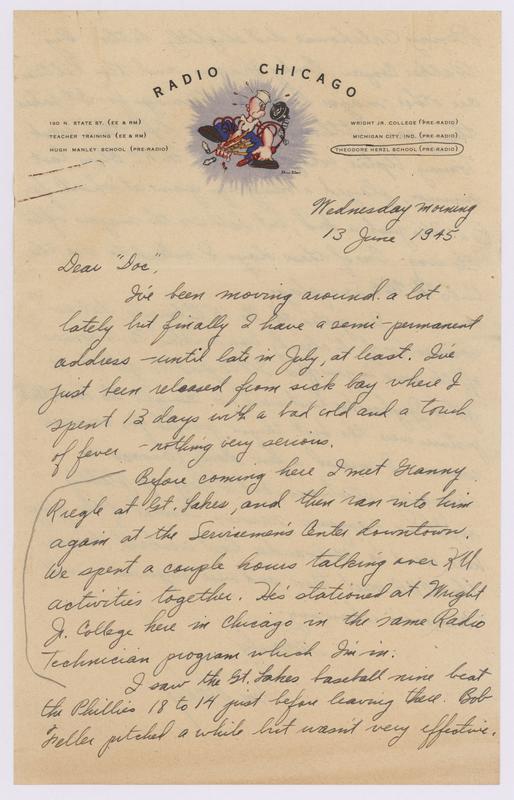 RADIO CHICAGO
190 N. STATE ST. (EE & RM)
TEACHER TRAINING (EE & RM)
HUGH MANLEY SCHOOL (PRE-RADIO)
WRIGHT JR. COLLEGE (PRE-RADIO)
MICHIGAN CITY, IND. (PRE-RADIO)
THEODORE HERZL SCHOOL (PRE-RADIO)
Wednesday morning
13 June 1945
Dear "Doc",
I've been moving around a lot
lately but finally I have a semi-permanent
address - until late in July, at least. I've
just been released from sick bay where I
spent 13 days with a bad cold and a touch
of fever - nothing very serious.
Before coming here I met Granny
Riegle at Gt. Lakes, and then ran into him
again at the Servicemen's Center downtown.
We spent a couple hours talking over KU
activities together. He's stationed at Wright
Jr. College here in Chicago in the same Radio
Technician program which I'm in.
I saw the Gt. Lakes baseball nine beat
the Phillies 18 to 14 just before leaving there. Bob
Feller pitched a while but wasn't very effective.